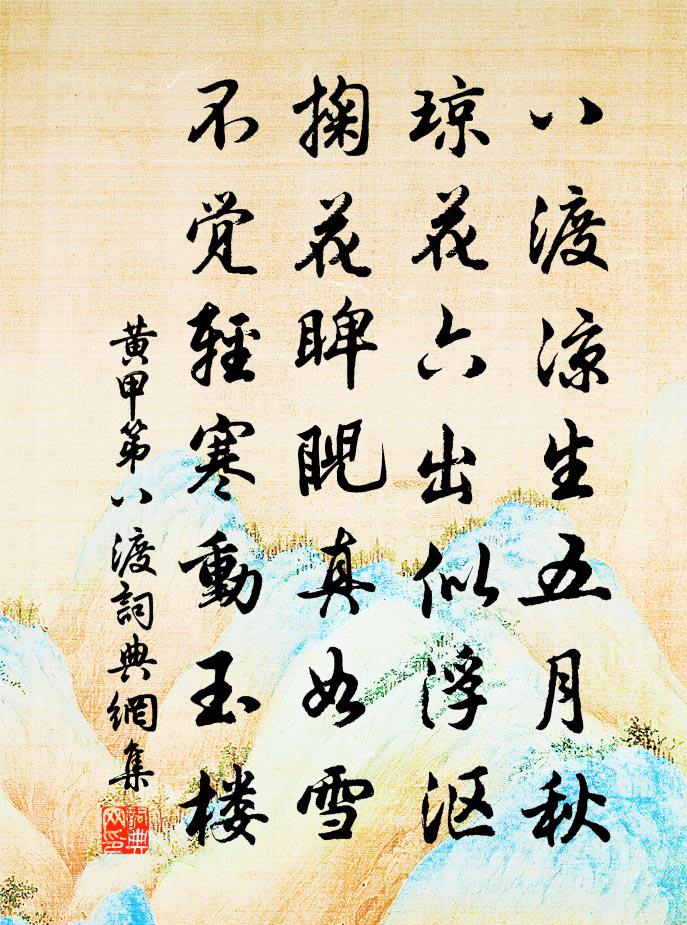 八渡凉生五月秋
琼花六出似浮沤
掬花睥睨真如雪
不觉轻寒動玉楼
黄甲第八渡詞典網集
詞典
網印